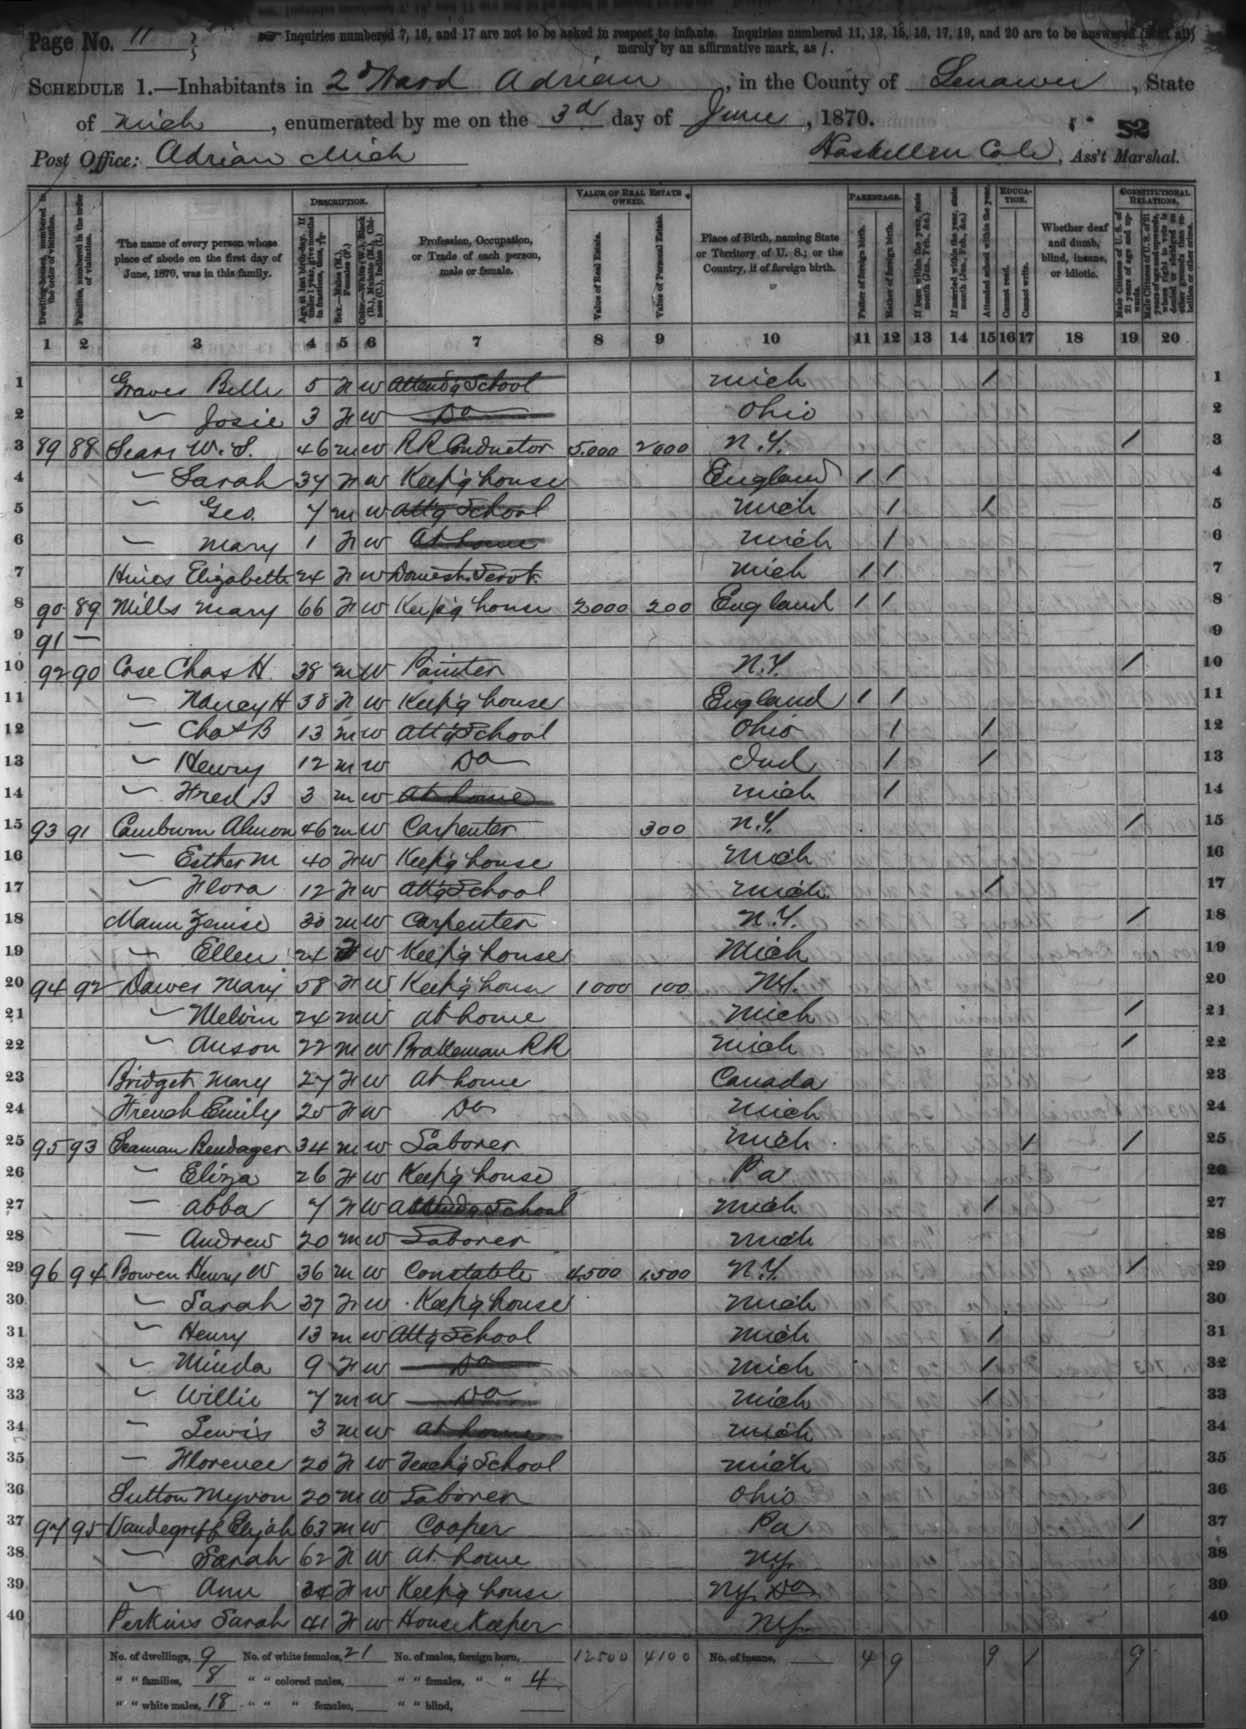 Page No. 11
Inquiries numbered 7, 16, and 17 are not to be asked in respect to infants. Inquiries numbered 11, 12, 15, 16, 17, 19, and 20 are to be answered (if at all)
merely by an affirmative mark, as /.
SCHEDULE 1.—Inhabitants in 2d Ward Adrian, in the County of Lenawee, State
of Mich, enumerated by me on the 3d day of June, 1870.
52
Post Office: Adrian Mich Cole, Ass't Marshal.
Dwelling-houses, numbered in the order of visitation.
Families, numbered in the order of visitation.
The name of every person whose place of abode on the first day of June, 1870, was in this family.
DESCRIPTION.
Age at last birthday. If under 1 year, give months in fractions, thus, 3/12
Sex.—Males (M.), Females (F.)
Color.—White (W.), Black (B.), Mulatto (M.), Chinese (C.), Indian (I.)
Profession, Occupation, or Trade of each person, male or female.
VALUE OF REAL ESTATE OWNED.
Value of Real Estate.
Value of Personal Estate.
Place of Birth, naming State or Territory of U. S.; or the Country, if of foreign birth.
PARENTAGE.
Father of foreign birth.
Mother of foreign birth.
If born within the year, state month (Jan., Feb., &c.)
If married within the year, state month (Jan., Feb., &c.)
Attended school within the year.
EDUCATION.
Cannot read.
Cannot write.
Whether deaf and dumb, blind, insane, or idiotic.
CONSTITUTIONAL RELATIONS.
Male Citizens of U. S. of 21 years of age and upwards.
Male Citizens of U. S. of 21 years of age and upwards, whose right to vote is denied or abridged on other grounds than rebellion or other crime.
1 2 3 4 5 6 7 8 9 10 11 12 13 14 15 16 17 18 19 20
1 Graves Belle 5 F W Attend'g School Mich / 1
2 " Josie 3 F W Do Ohio 2
3 89 88 Sears W. S. 46 M W RR Conductor 5,000 2000 N.Y. / 3
4 " Sarah 34 F W Keep'g house England / / 4
5 " Geo. 7 M W Att'g School Mich / / 5
6 " Mary 1 F W At home Mich / 6
7 Hines Elizabeth 24 F W Domest. Servt. Mich / / 7
8 90 89 Mills Mary 66 F W Keep'g house 2000 200 England / / 8
9 91 — 9
10 92 90 Case Chas H. 38 M W Painter N.Y. / 10
11 " Nancy H 38 F W Keep'g house England / / 11
12 " Chas B 13 M W Att'g School Ohio / / 12
13 " Henry 12 M W Do Ind / / 13
14 " Fred B 3 M W At home Mich / 14
15 93 91 Camburn Almon 46 M W Carpenter 300 N.Y. / 15
16 " Esther M 40 F W Keep'g house Mich 16
17 " Flora 12 F W Att'g School Mich / 17
18 Mann 30 M W Carpenter N.Y. / 18
19 " Ellen 24 F W Keep'g house Mich 19
20 94 92 Dawes Mary 58 F W Keep'g house 1000 100 N.Y. 20
21 " Melvin 24 M W at home Mich / 21
22 " Anson 22 M W Brakeman RR Mich / 22
23 Bridget Mary 27 F W At home Canada 23
24 French Emily 25 F W Do Mich 24
25 95 93 Seaman 34 M W Laborer Mich / / 25
26 " Eliza 26 F W Keep'g house Pa 26
27 " Abba 7 F W Attend'g School Mich / 27
28 " Andrew 20 M W Laborer Mich 28
29 96 94 Bowen Henry W 36 M W Constable 4,500 1,500 N.Y. / 29
30 " Sarah 37 F W Keep'g house Mich 30
31 " Henry 13 M W Att'g School Mich / 31
32 " Minda 9 F W Do Mich / 32
33 " Willie 7 M W Do Mich / 33
34 " Lewis 3 M W At home Mich 34
35 " Florence 20 F W Teach'g School Mich 35
36 Sutton Myron 20 M W Laborer Ohio 36
37 97 95 Vandegriff Elijah 63 M W Cooper Pa / 37
38 " Sarah 62 F W At home N.Y. 38
39 " Ann 34 F W Keep'g house N.Y. Do 39
40 Perkins Sarah 41 F W House Keeper N.Y. 40
No. of dwellings, 9 No. of white females, 21 No. of males, foreign born, 12500 4100 No. of insane, 4 9 9 1 9
" " families, 8 " " colored males, " " females, " " 4
" " white males, 18 " " " females, " " blind,